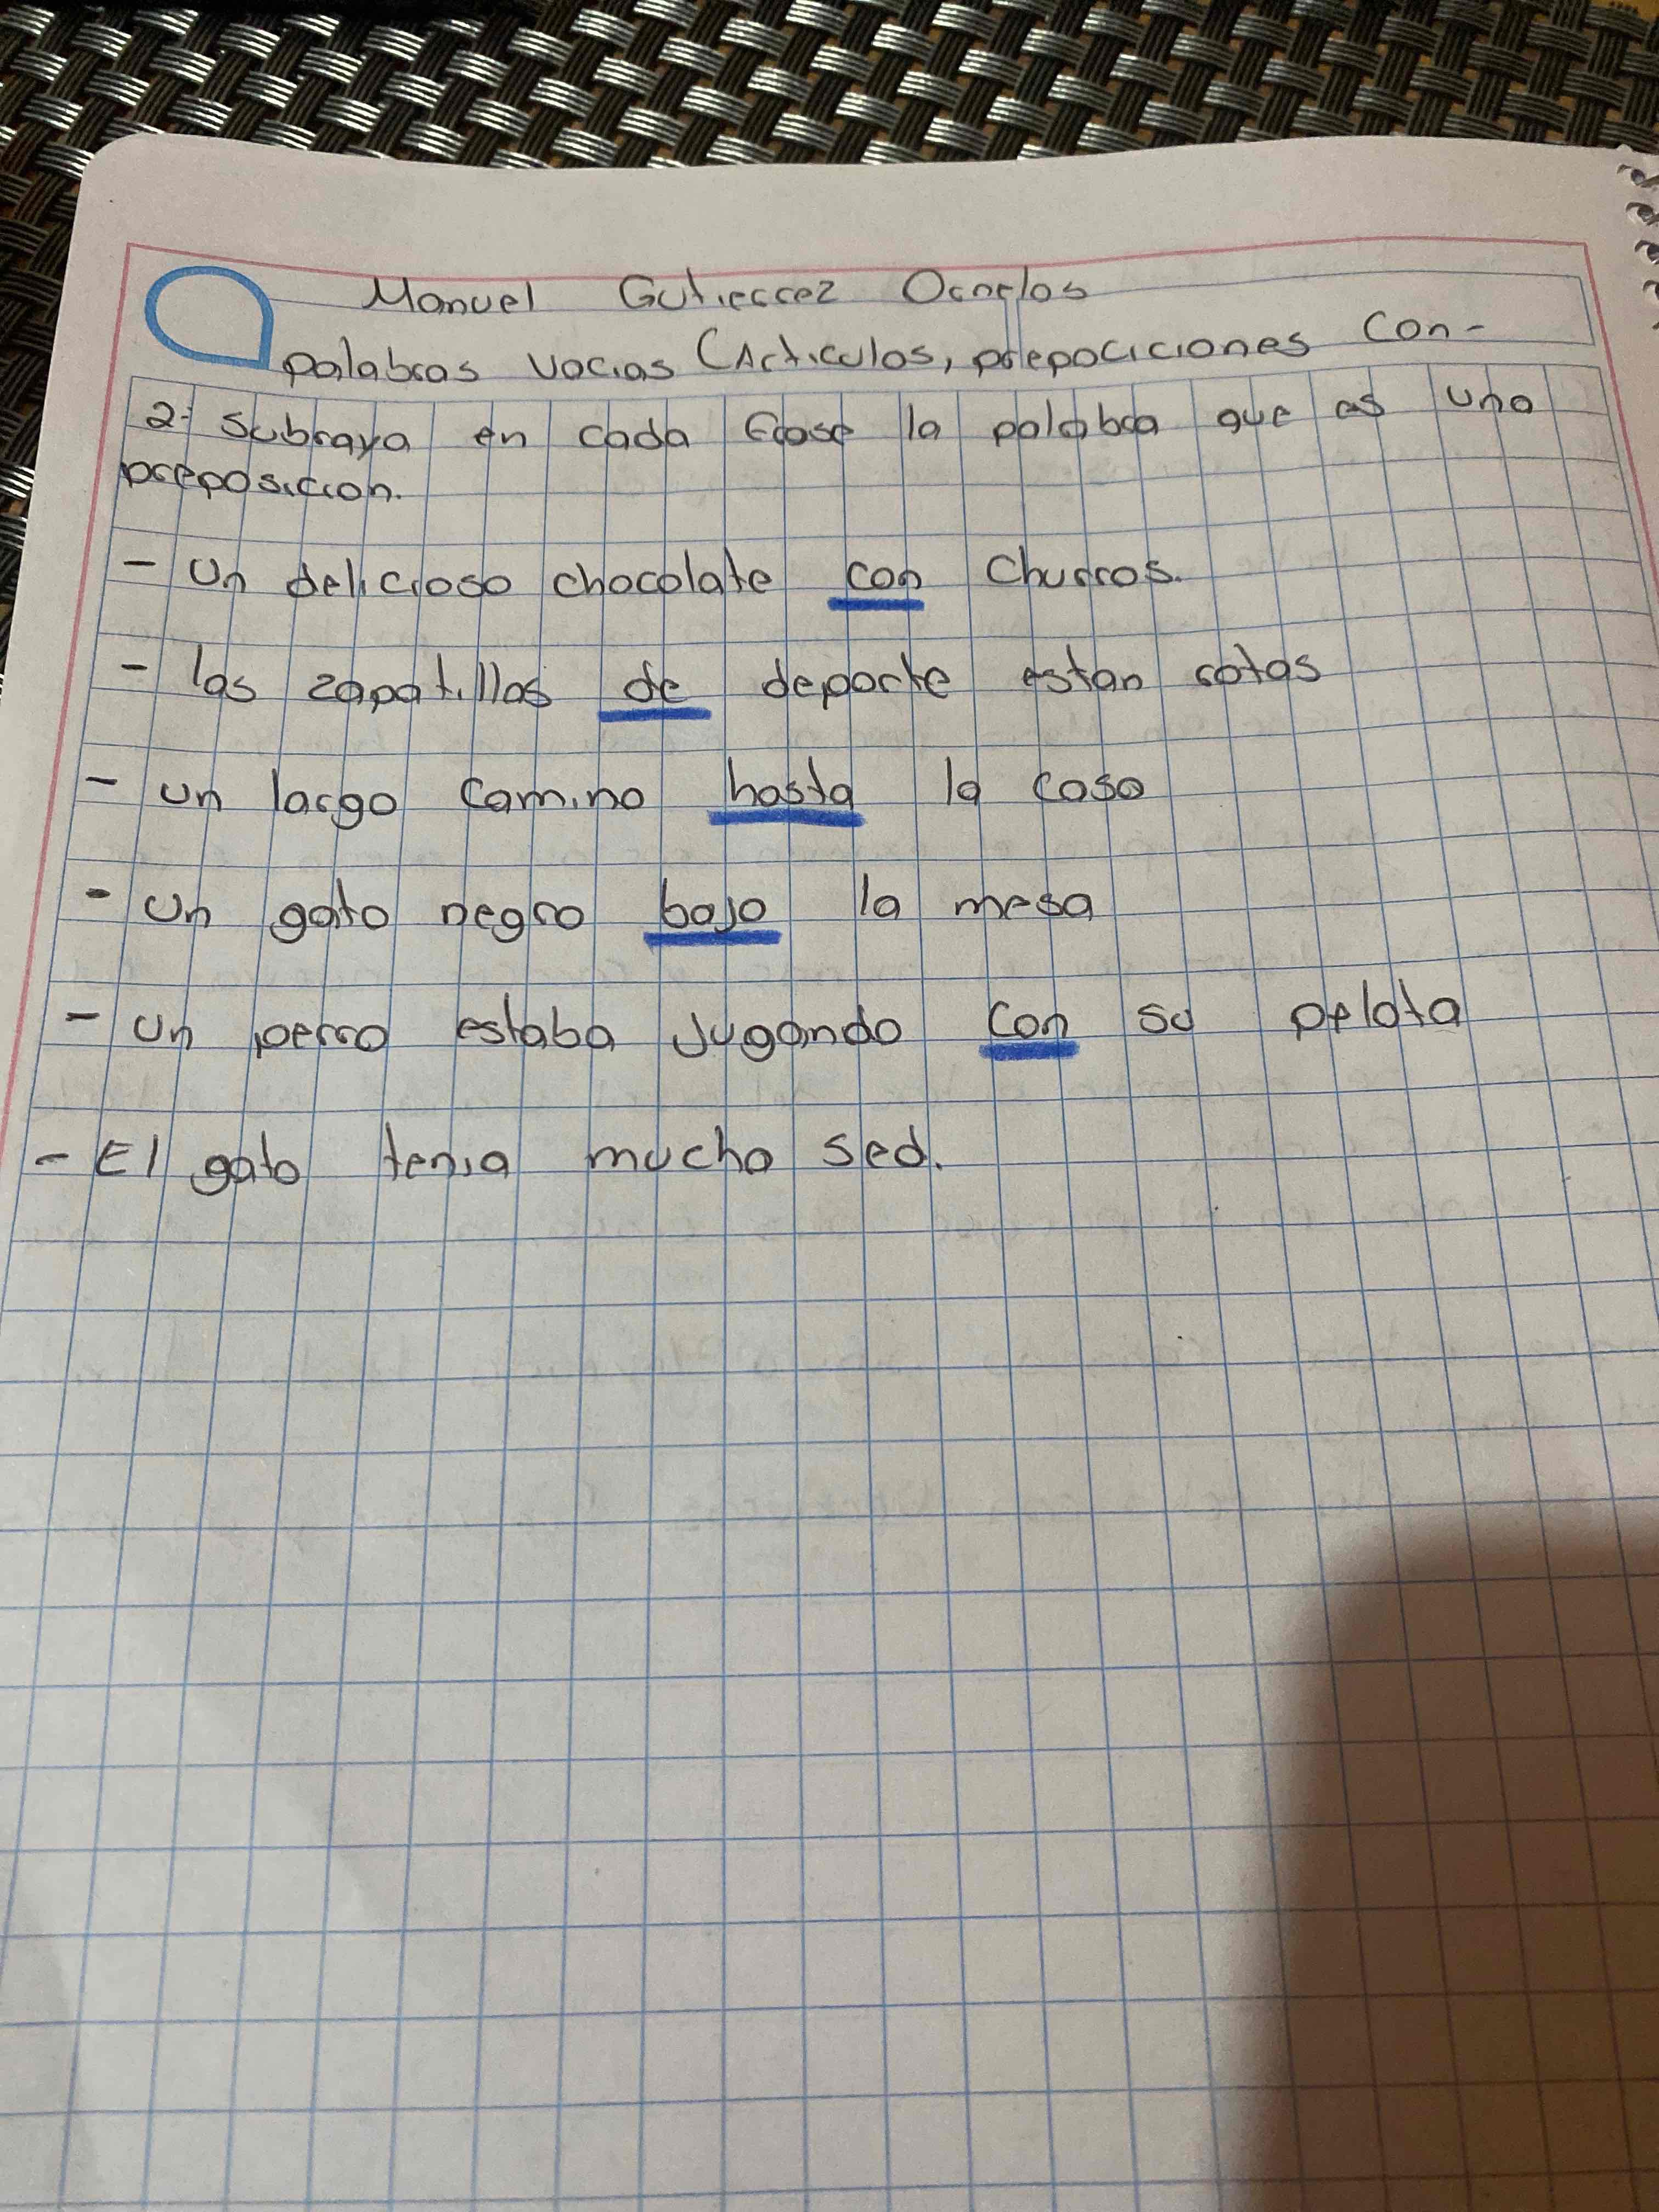 Manuel Gutierrez Ornelas
palabras vacias (Articulos, prepociciones con-
2- Subraya en cada frase la palabra que es una
preposicion.
- Un delicioso chocolate con churros.
- las zapatillas de deporte estan rotas
- un largo camino hasta la casa
- un gato negro bajo la mesa
- un perro estaba jugando con su pelota
- El gato tenia mucha sed.